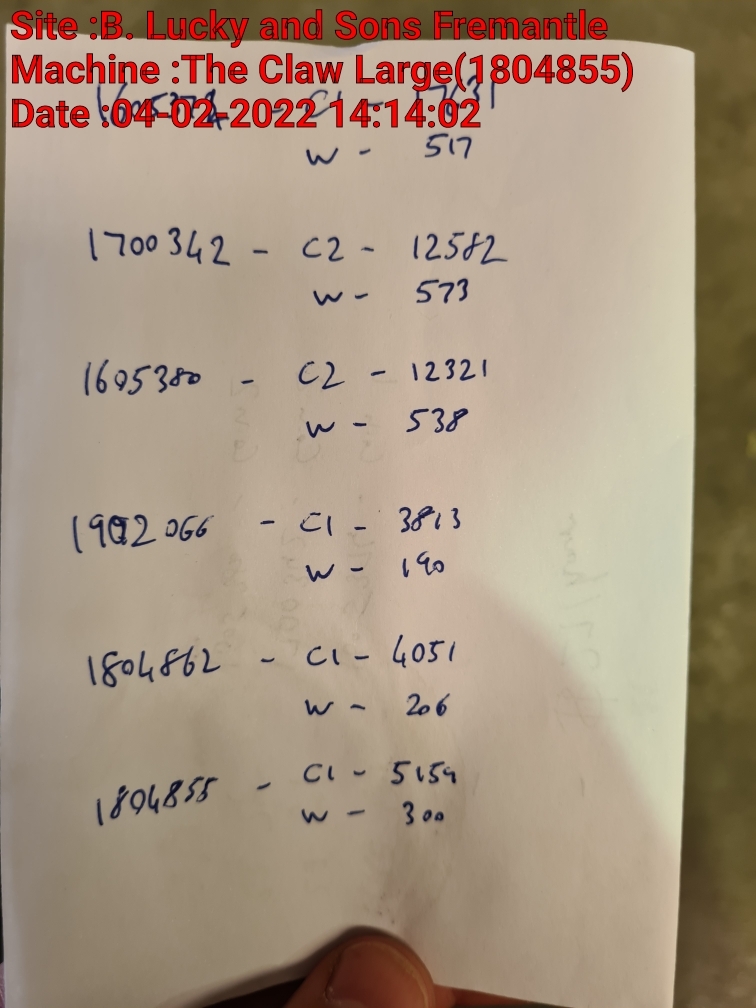 Site :B. Lucky and Sons Fremantle
Machine :The Claw Large(1804855)
Date :04-02-2022 14:14:02
W - 517
1700342 - C2 - 12582
W - 573
1605380 - C2 - 12321
W - 538
1902066 - C1 - 3813
W - 190
1804862 - C1 - 4051
W - 206
1804855 - C1 - 5159
W - 300